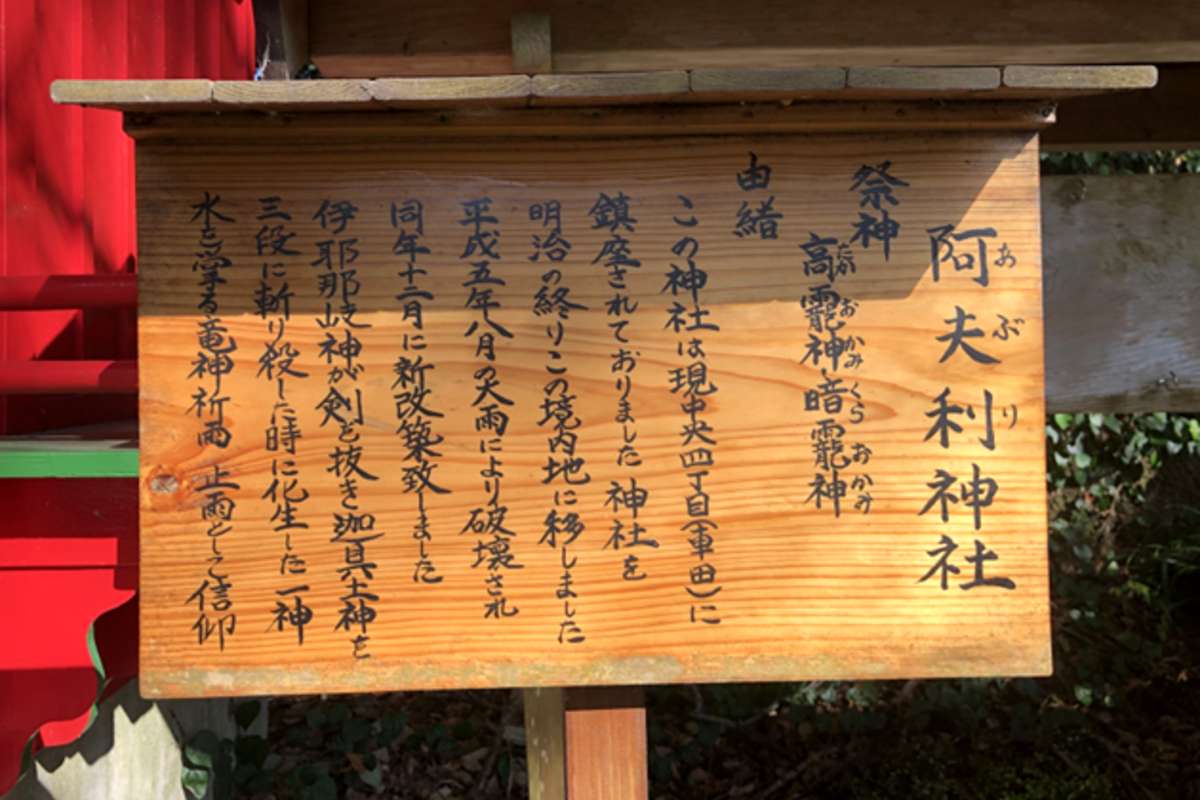 阿夫利神社
あぶり
祭神
高龗神 暗龗神
たかおかみ くらおかみ
由緒
この神社は現中央四丁目(車田)に
鎮座されておりました神社を
明治の終りこの境内地に移しました
平成五年八月の大雨により破壊され
同年十二月に新改築致しました
伊耶那岐神が剣を抜き迦具土神を
三段に斬り殺した時に化生した一神
水を掌る竜神祈雨 止雨として信仰